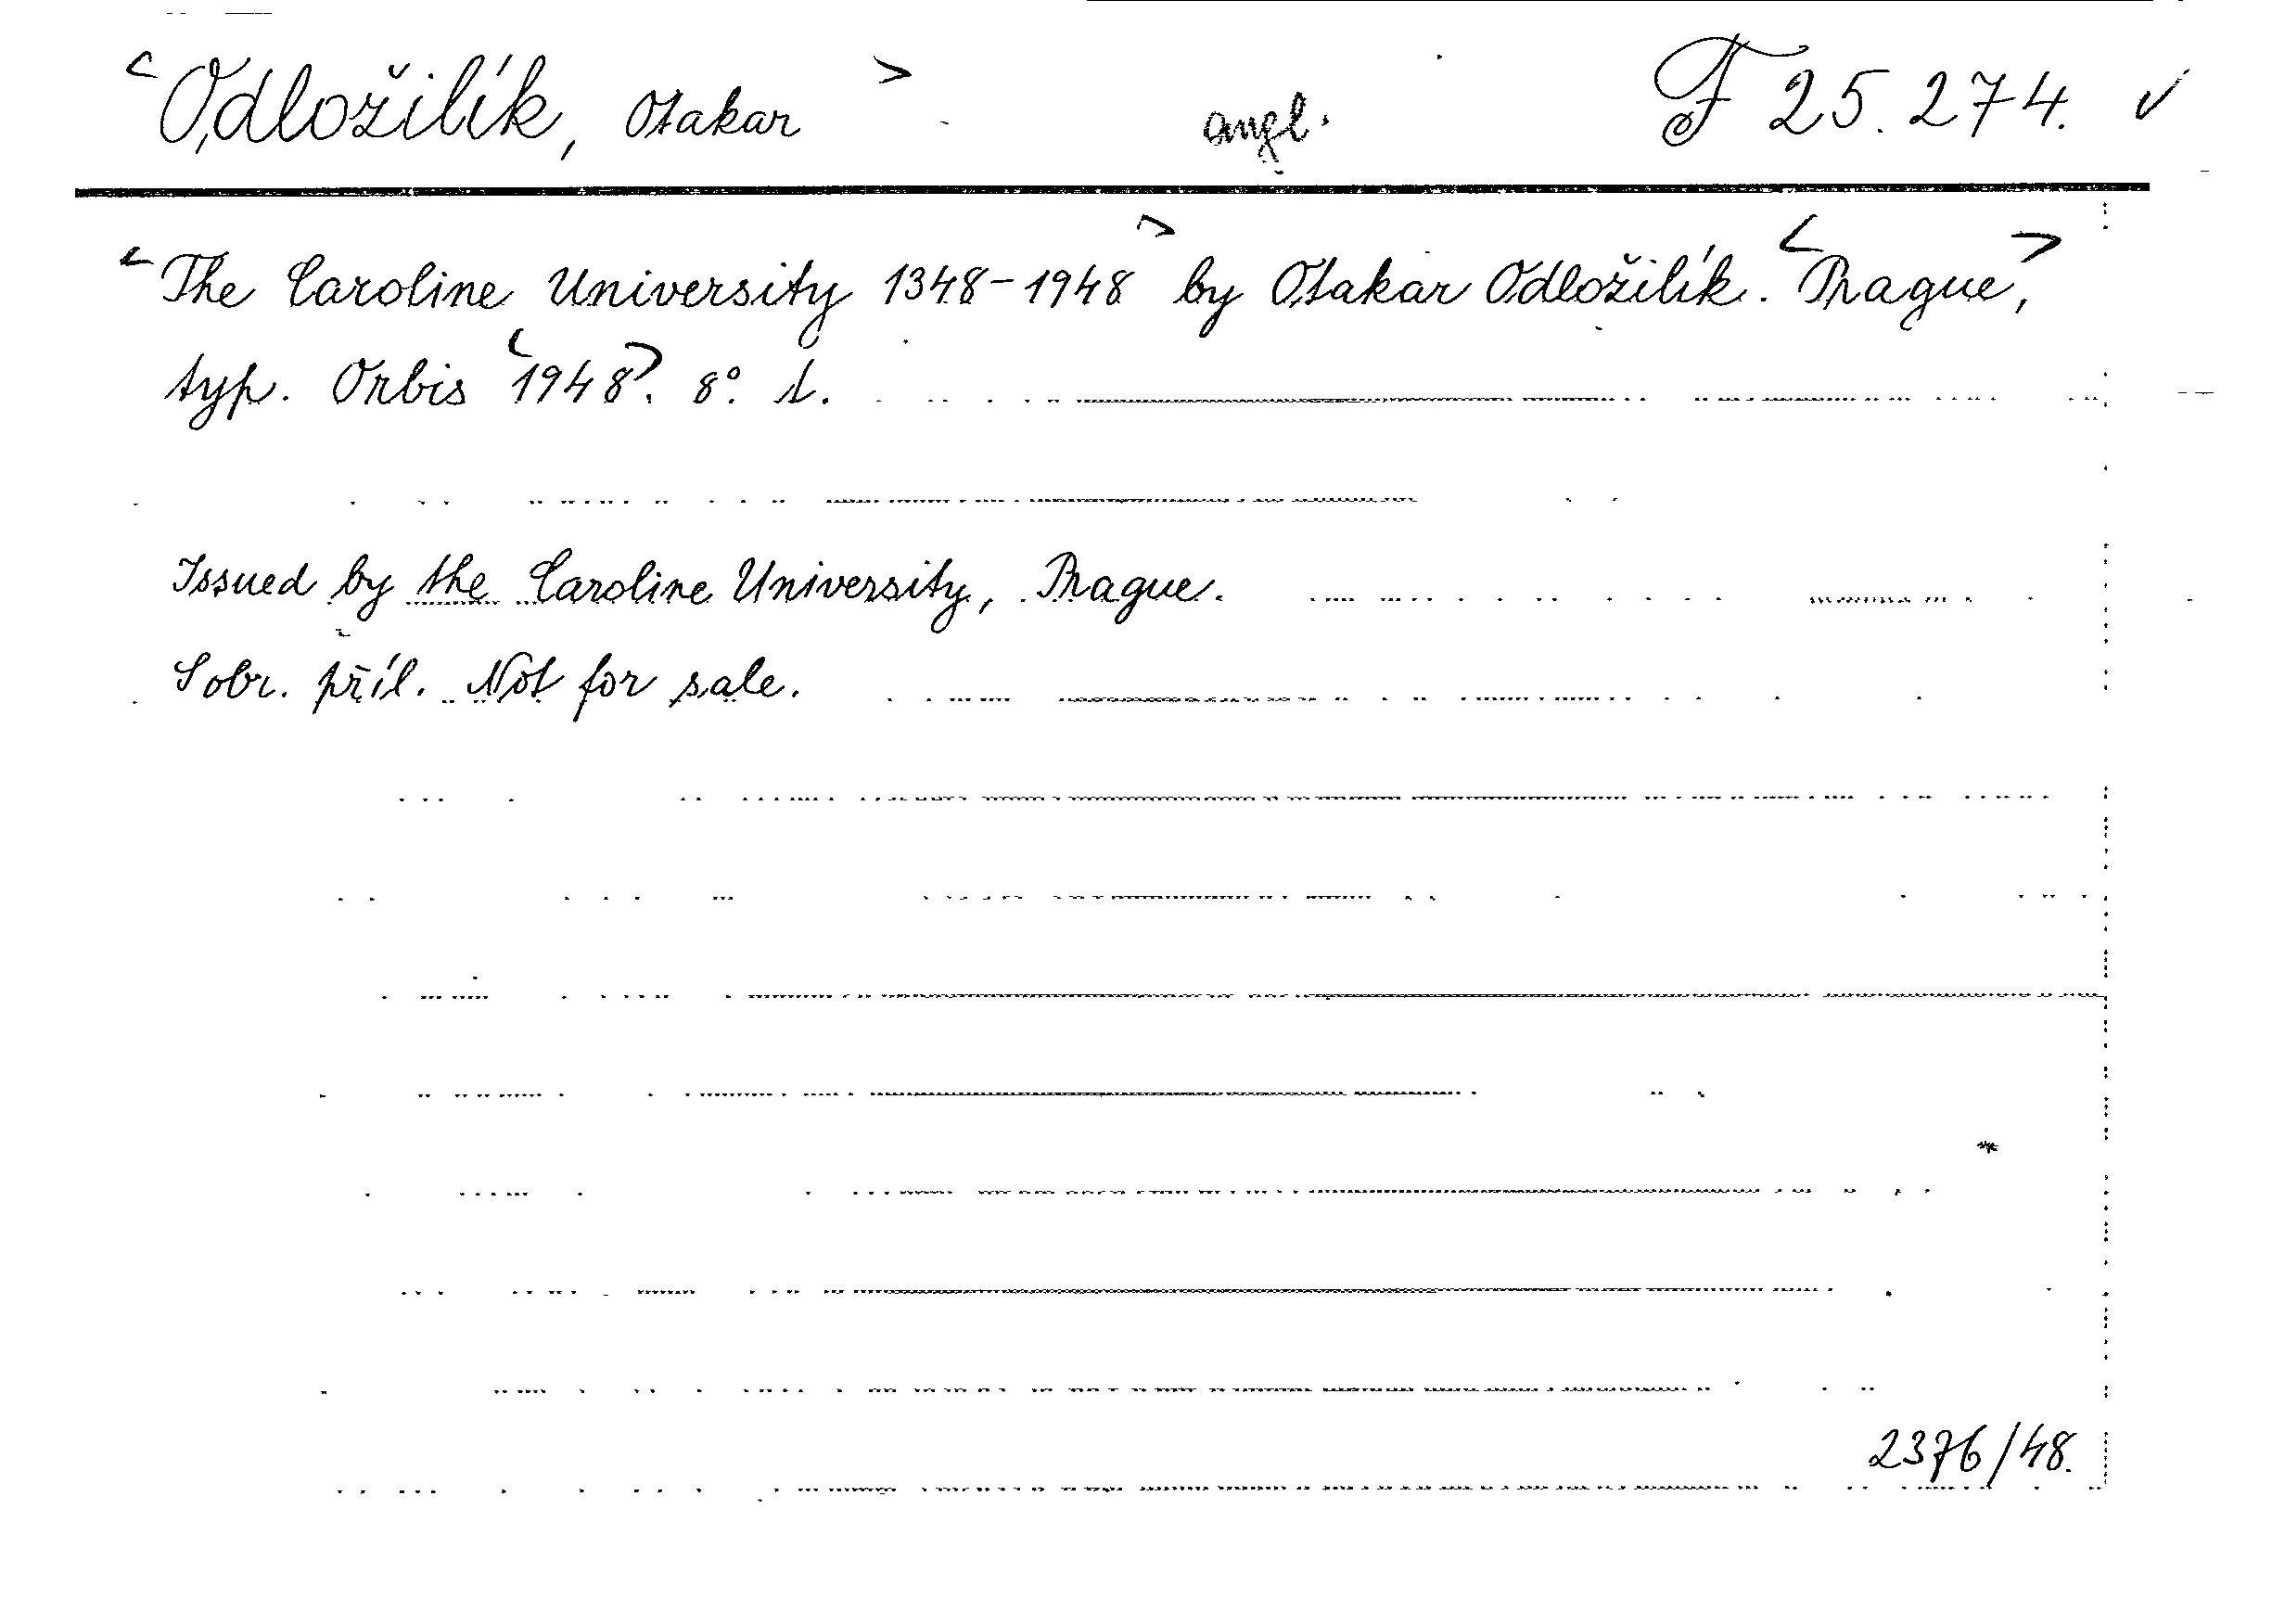 <Odložilík, Otakar> angl. F 25.274. ✓
<The Caroline University 1348-1948> by Otakar Odložilík. <Prague,>
typ. Orbis <1948>. 8°. s.
Issued by the Caroline University, Prague.
S obr. příl. Not for sale.
2376/48.